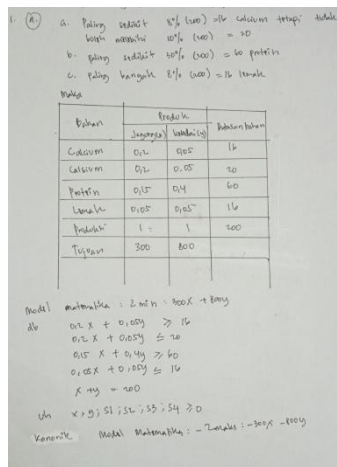 1. (a.) a. Paling sedikit 8% (200) = 16 calcium tetapi tidak
boleh melebihi 10% (200) = 20
b. paling sedikit 30% (200) = 60 protein
c. paling banyak 8% (200) = 16 lemak
Maka
Bahan | Produk | Batasan bahan
Jagung(x) | kedelai(y)
Calcium | 0,2 | 0,05 | 16
Calsium | 0,2 | 0,05 | 20
Protein | 0,15 | 0,4 | 60
Lemak | 0,05 | 0,05 | 16
Produksi | 1 | 1 | 200
Tujuan | 300 | 800
Model matematika : Z min : 300x + 800y
db 0,2 x + 0,05y ≥ 16
0,2 x + 0,05y ≤ 20
0,15 x + 0,4y ≥ 60
0,05x + 0,05y ≤ 16
x + y = 200
x, y, S1; S2; S3; S4 ≥ 0
Kanonik Model Matematika : - Z maks : -300x - 800y